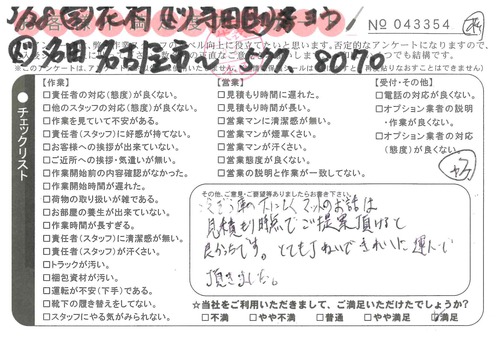 No 043354
チェックリスト
【作業】
□責任者の対応(態度)が良くない。
□他のスタッフの対応(態度)が良くない。
□作業を見ていて不安がある。
□責任者(スタッフ)に好感が持てない。
□お客様への挨拶が出来ていない。
□ご近所への挨拶・気遣いが無い。
□作業開始前の内容確認がなかった。
□作業開始時間が遅れた。
□荷物の取り扱いが雑である。
□お部屋の養生が出来ていない。
□作業時間が長すぎる。
□責任者(スタッフ)に清潔感が無い。
□責任者(スタッフ)が汗くさい。
□トラックが汚い。
□梱包資材が汚い。
□運転が不安(下手)である。
□靴下の履き替えをしてない。
□スタッフにやる気がみられない。
【営業】
□見積もり時間に遅れた。
□見積もり時間が長い。
□営業マンに清潔感が無い。
□営業マンが煙草くさい。
□営業マンが汗くさい。
□営業態度が良くない。
□営業の説明と作業が一致してない。
【受付・その他】
□電話の対応が良くない。
□オプション業者の説明
・作業が良くない。
□オプション業者の対応
(態度)が良くない。
その他、ご意見・ご要望等ありましたらお書き下さい。
見積もり時点でご提案頂けると
良かったです。とても丁ねいできれいに運んで
頂きました。
☆当社をご利用いただきまして、ご満足いただけたでしょうか?
□不満 □やや不満 □普通 □やや満足 □満足